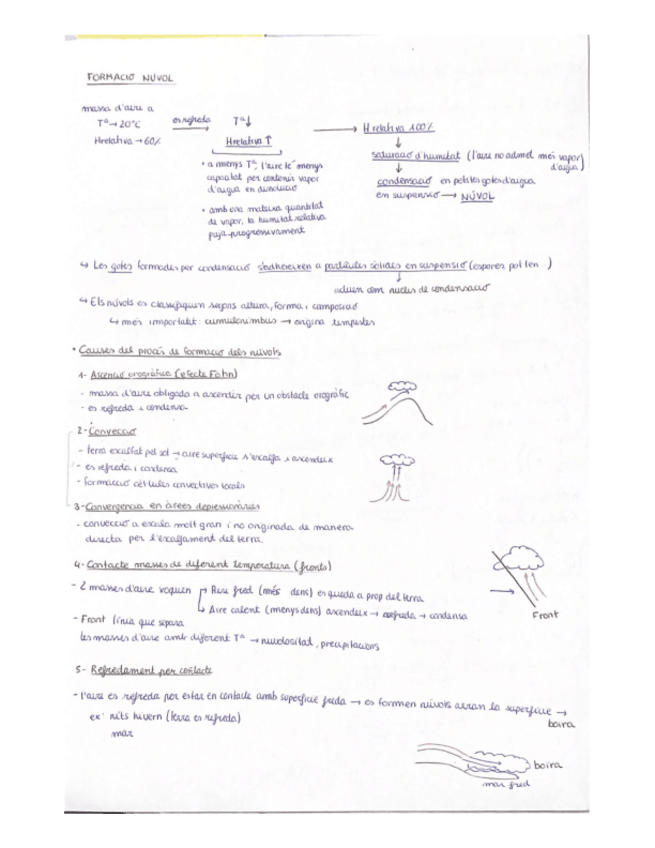 FORMACIÓ NÚVOL
massa d'aire a
Tª → 20°C
Hrelativa → 60%
es refreda
Tª↓
Hrelativa ↑
• a menys Tª, l'aire té menys
capacitat per contenir vapor
d'aigua en dissolució
• amb una mateixa quantitat
de vapor, la humitat relativa
puja progressivament
Hrelativa 100%
saturació d'humitat (l'aire no admet més vapor
d'aigua)
condensació en petites gotes d'aigua
em suspensió → NÚVOL
↳ Les gotes formades per condensació s'adhereixen a partícules sòlides en suspensió (espores, pol·len...)
actuen com nuclis de condensació
↳ Els núvols es classifiquen segons altura, forma i composició
↳ més important: cumulonimbus → origina tempestes
• Causes del procés de formació dels núvols
1- Ascenció orogràfica (efecte Föhn)
- massa d'aire obligada a ascendir per un obstacle orogràfic
- es refreda i condensa
2- Convecció
- terra escalfat pel sol → aire superfície s'escalfa i ascendeix
- es refreda i condensa
- formació cèl·lules convectives locals
3- Convergència en àrees depressionàries
- convecció a escala molt gran i no originada de manera
directa per l'escalfament del terra.
4- Contacte masses de diferent temperatura (fronts)
- 2 masses d'aire xoquen
→ Aire fred (més dens) es queda a prop del terra
↳ Aire calent (menys dens) ascendeix → refreda → condensa
- Front línia que separa
les masses d'aire amb diferent Tª → nuvolositat, precipitacions
Front
5- Refredament per contacte
- l'aire es refreda per estar en contacte amb superfície freda → es formen núvols arran la superfície →
boira
ex: nits hivern (terra es refreda)
mar
boira
mar fred